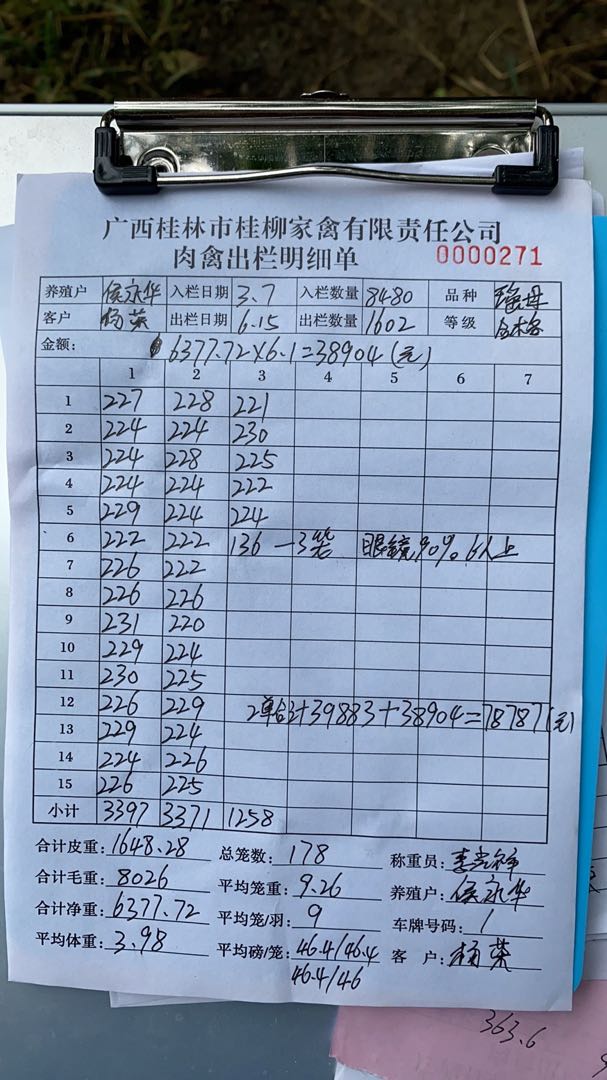 广西桂林市桂柳家禽有限责任公司
肉禽出栏明细单 0000271
养殖户 侯永华 入栏日期 3.7 入栏数量 8480 品种 瑶母
客户 杨荣 出栏日期 6.15 出栏数量 1602 等级
金额: 6377.72×6.1=38904(元)
1 2 3 4 5 6 7
1 227 228 221
2 224 224 230
3 224 228 225
4 224 224 222
5 229 224 224
6 222 222 136 —3笼 眼镜90%以上
7 226 222
8 226 226
9 231 220
10 229 224
11 230 225
12 226 229 2单合计39883+38904=78787(元)
13 229 224
14 224 226
15 226 225
小计 3397 3371 1258
合计皮重: 1648.28 总笼数: 178 称重员:
合计毛重: 8026 平均笼重: 9.26 养殖户: 侯永华
合计净重: 6377.72 平均笼/羽: 9 车牌号码: 1
平均体重: 3.98 平均磅/笼: 46.4/46.4 客 户: 杨荣
46.4/46
363.6